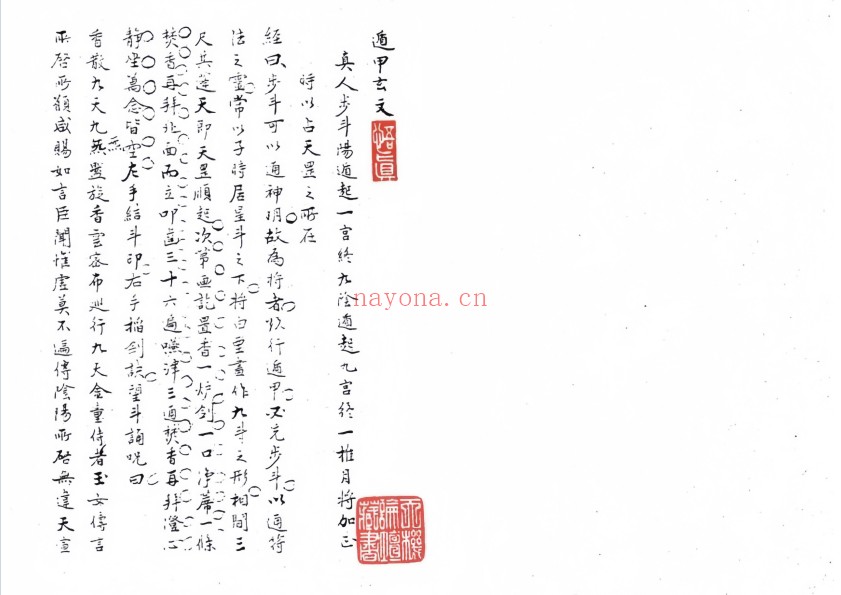 遁甲玄文
悟真
真人步斗陽遁起一宮終九陰遁起九宮終一推月將加正
時以占天罡之所在
經曰步斗可以通神明故為將者欲行遁甲必先步斗以通符
法之靈常以子時居星斗之下將白堊畫作九斗之形相間三
尺其蓬天即天罡順起次第畫訖置香一炉剑一口净蓆一條
焚香再拜北面而立叩齒三十六遍嚥津三通焚香再拜澄心
靜坐萬念皆空左手結斗印右手搯剑訣望斗誦咒曰
香散九天九炁盤旋香雲密布巡行九天金童侍者玉女傳言
所啓所願咸賜如言臣聞惟虛莫不遍傳陰陽所啓無違天宣
天機論壇藏書
nayona.cn